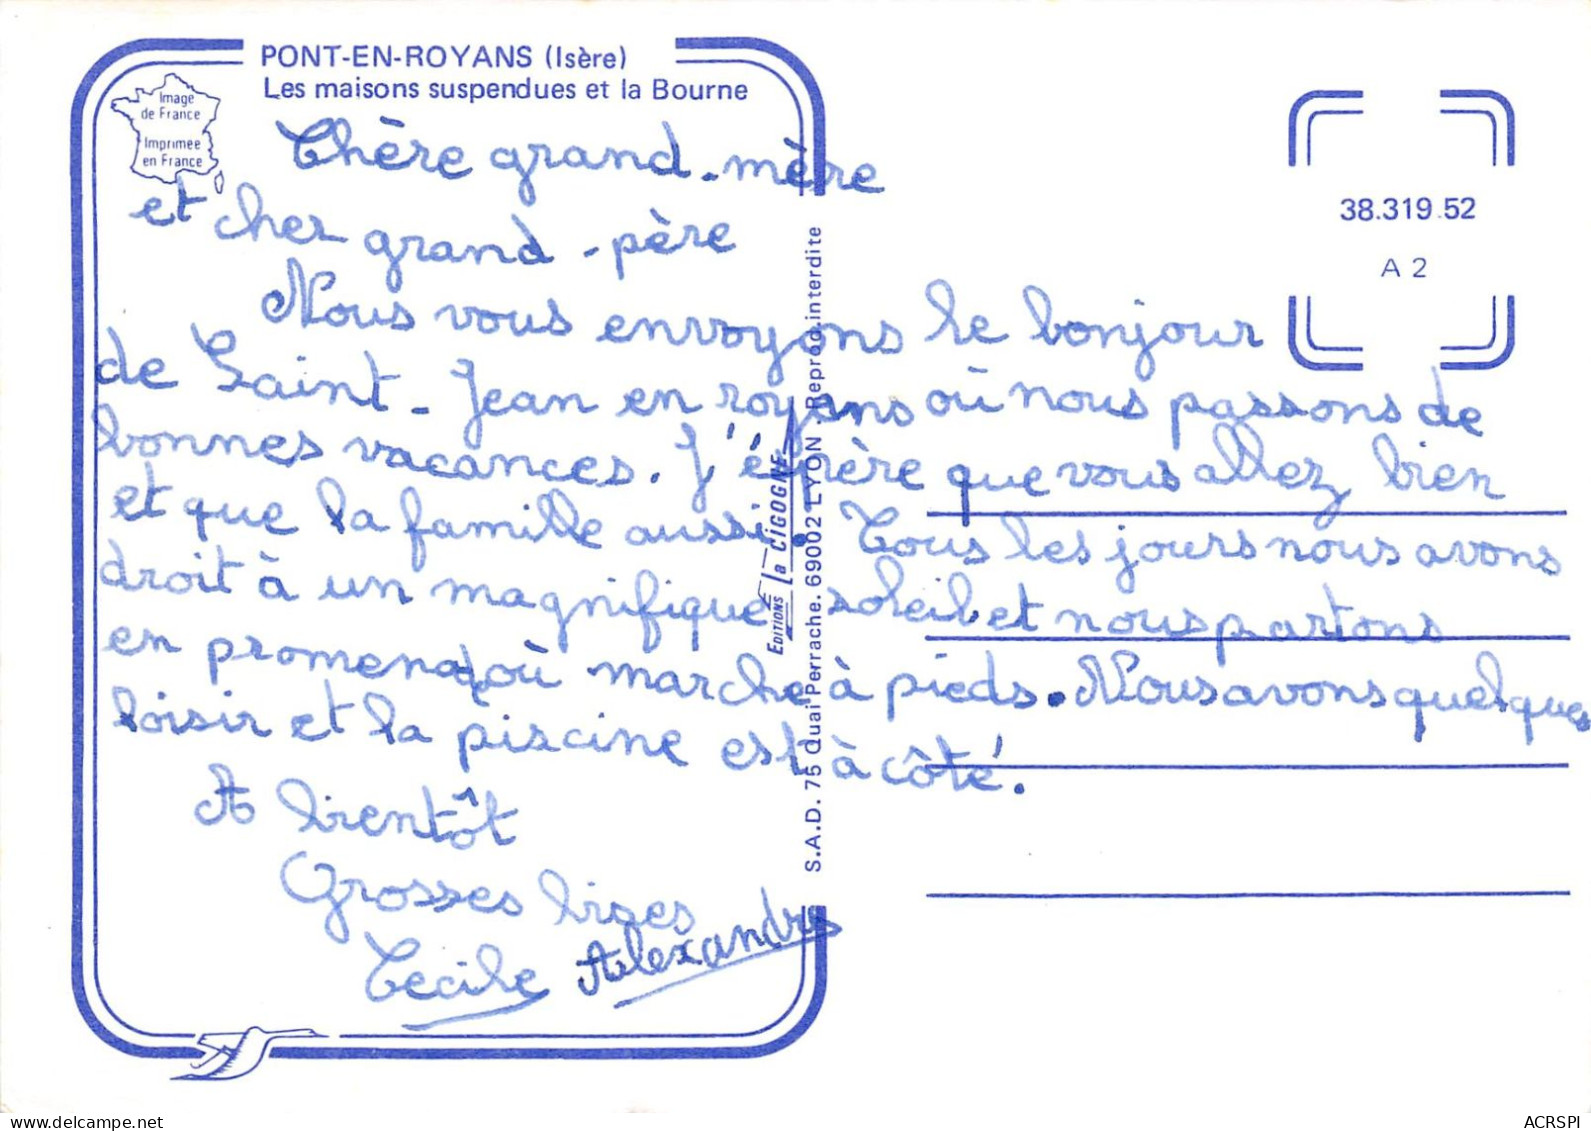 PONT-EN-ROYANS (Isère)
Les maisons suspendues et la Bourne
Image
de France
Imprimée
en France
38.319.52
A 2
Chère grand-mère
et cher grand-père
Nous vous envoyons le bonjour
de Saint-Jean en royans où nous passons de
bonnes vacances. J'éspère que vous allez bien
et que la famille aussi. Tous les jours nous avons
droit à un magnifique soleil et nous partons
en promenad où marche à pieds. Nous avons quelques
loisir et la piscine est à côté.
A bientôt
Grosses bises
Cecile Alexandre
EDITIONS La CIGOGNE
S.A.D. 75 Quai Perrache. 69002 LYON. Reprod. interdite
ACRSPI